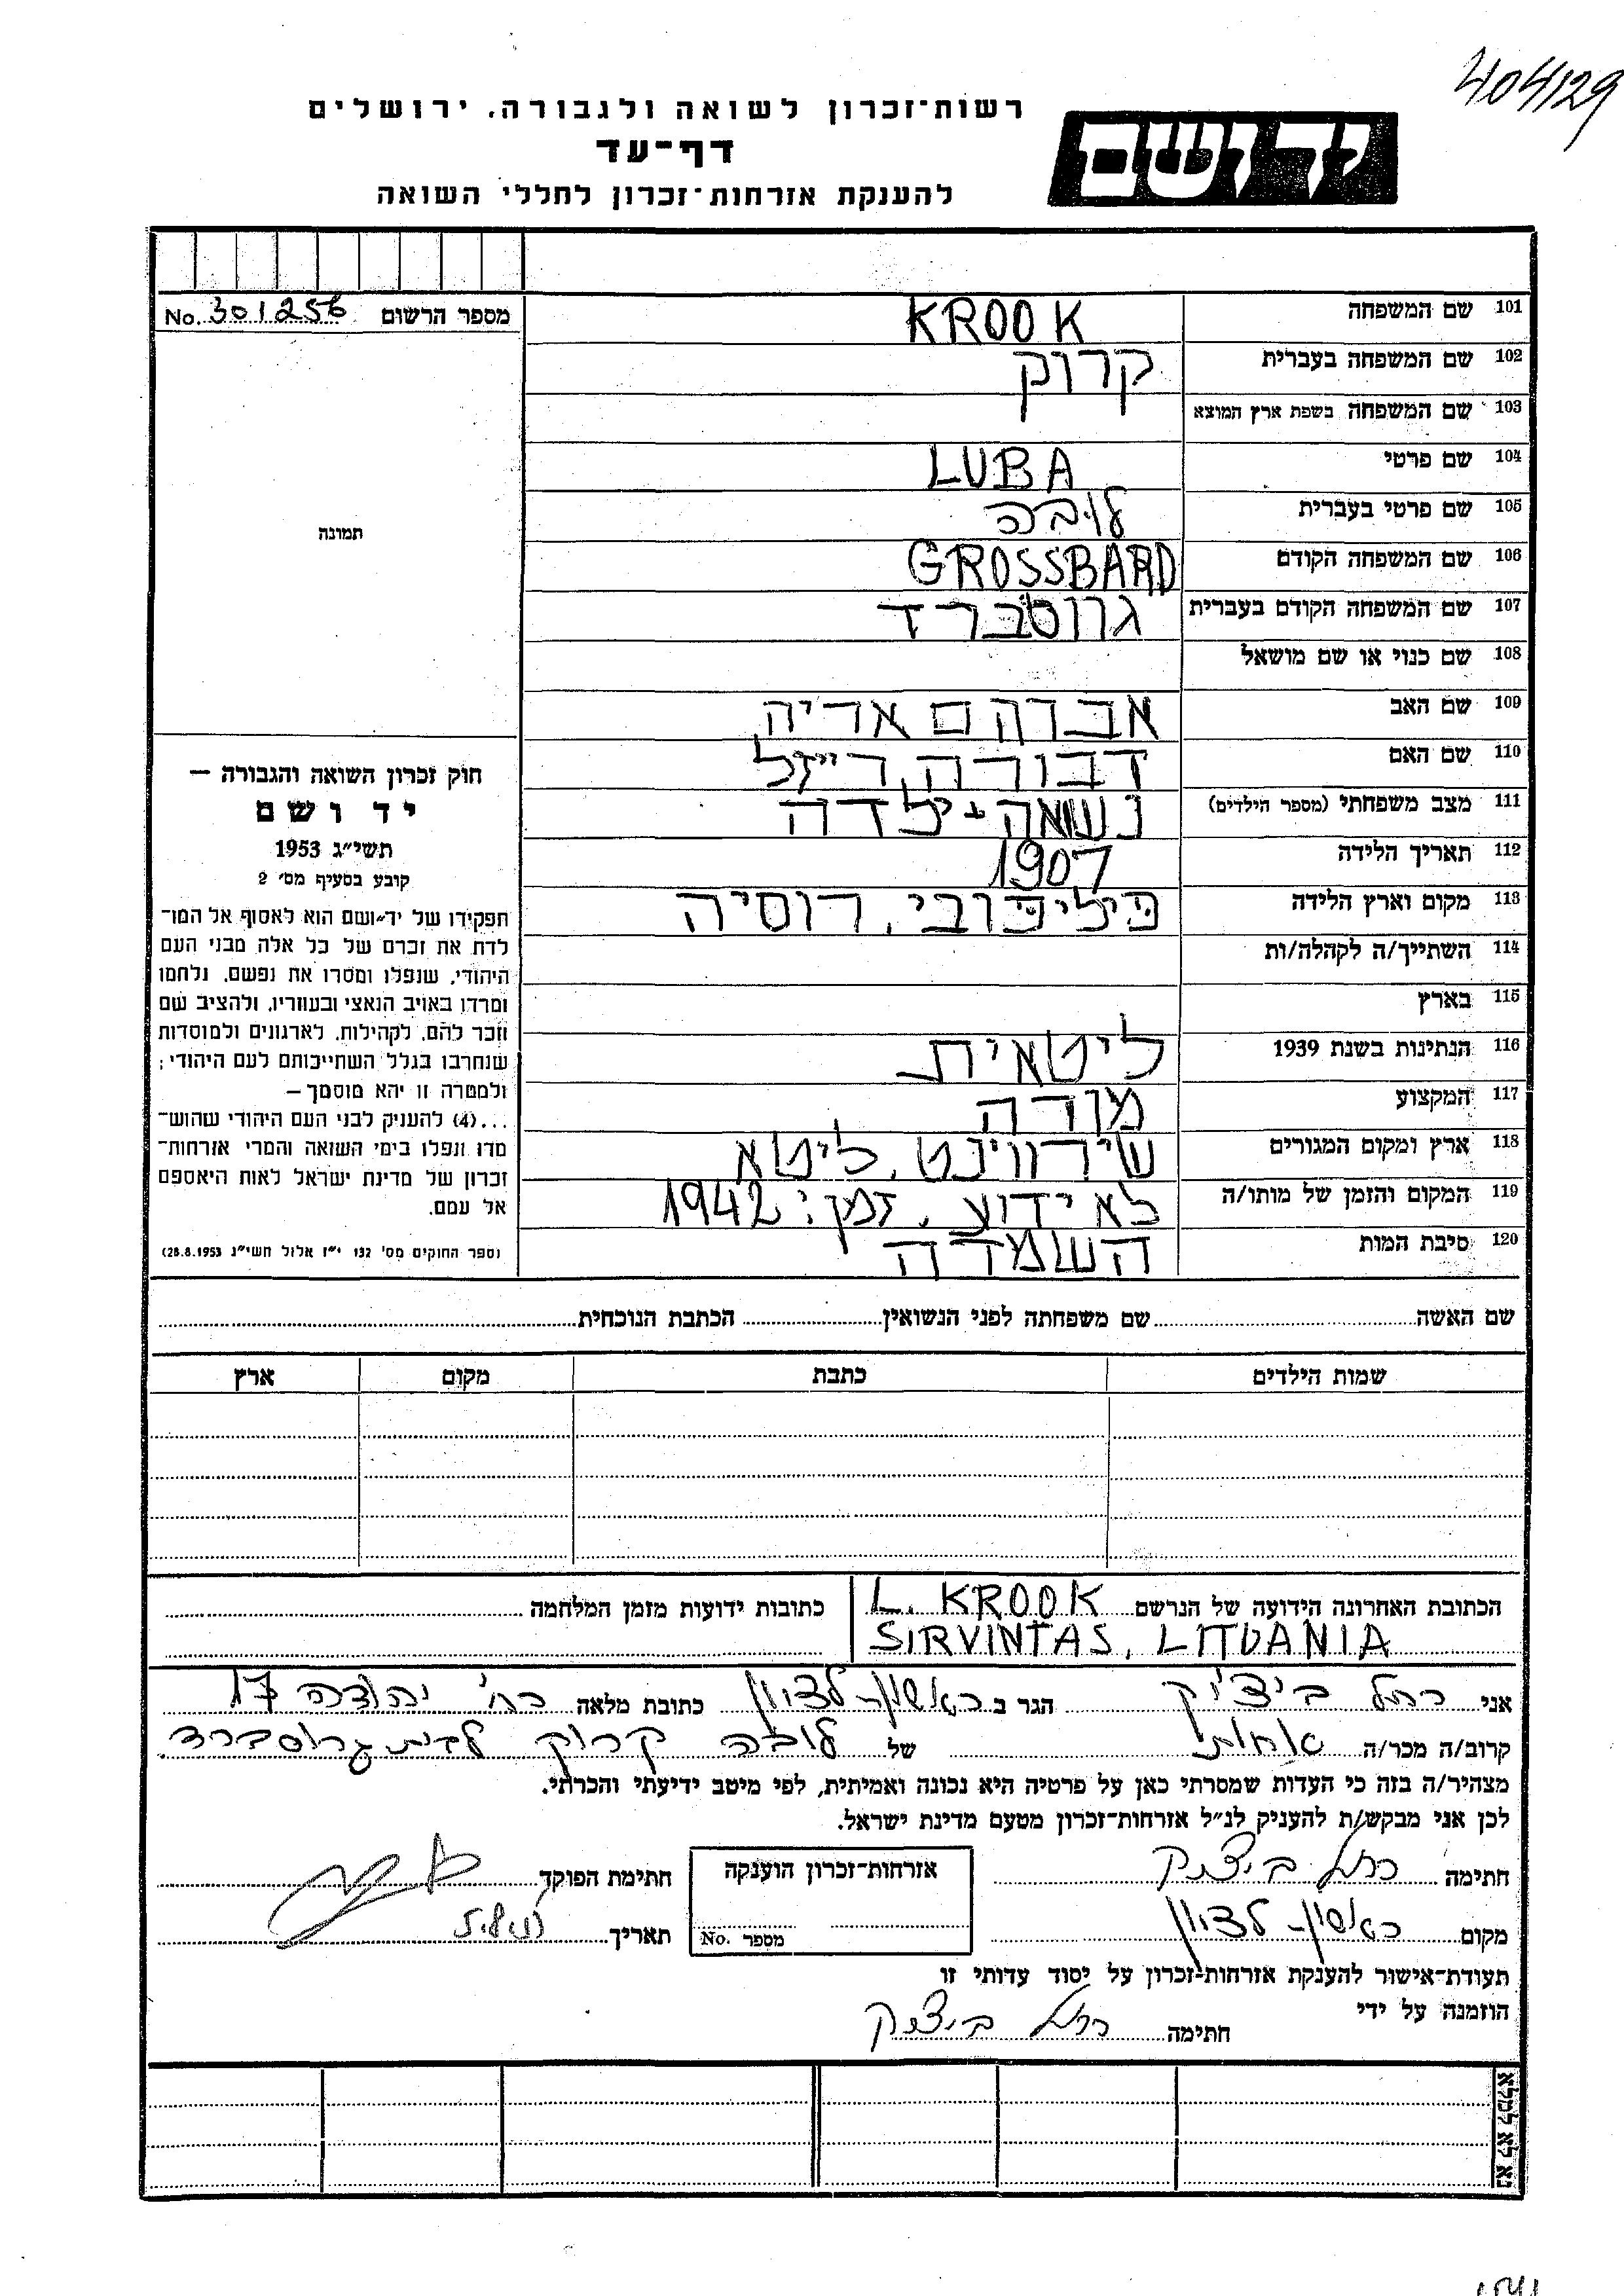 404129
רשות־זכרון לשואה ולגבורה. ירושלים
דף־עד
להענקת אזרחות־זכרון לחללי השואה
יד ושם
מספר הרשום No. 301256
101 שם המשפחה KROOK
102 שם המשפחה בעברית קרוק
103 שם המשפחה בשפת ארץ המוצא
104 שם פרטי LUBA
105 שם פרטי בעברית לובה
106 שם המשפחה הקודם GROSSBARD
107 שם המשפחה הקודם בעברית גרוסברד
108 שם כנוי או שם מושאל
109 שם האב אברהם אריה
110 שם האם דבורה רייזל
111 מצב משפחתי (מספר הילדים) נשואה + ילדה
112 תאריך הלידה 1907
113 מקום וארץ הלידה פיליפובי, רוסיה
114 השתייך/ה לקהלה/ות
115 בארץ
116 הנתינות בשנת 1939 ליטאית
117 המקצוע מורה
118 ארץ ומקום המגורים שירווינט, ליטא
119 המקום והזמן של מותו/ה לא ידוע. זמן: 1942
120 סיבת המות השמדה
תמונה
חוק זכרון השואה והגבורה —
יד ושם
תשי״ג 1953
קובע בסעיף מס׳ 2
תפקידו של יד־ושם הוא לאסוף אל המו־
לדת את זכרם של כל אלה מבני העם
היהודי, שנפלו ומסרו את נפשם, נלחמו
ומרדו באויב הנאצי ובעוזריו, ולהציב שם
וזכר להם, לקהילות, לארגונים ולמוסדות
שנחרבו בגלל השתייכותם לעם היהודי;
ולמטרה זו יהא מוסמך —
...(4) להעניק לבני העם היהודי שהוש־
מדו ונפלו בימי השואה והמרי אזרחות־
זכרון של מדינת ישראל לאות היאספם
אל עמם.
(ספר החוקים מס׳ 132 י״ז אלול תשי״ג 28.8.1953)
שם האשה שם משפחתה לפני הנשואין הכתבת הנוכחית
שמות הילדים כתבת מקום ארץ
הכתובת האחרונה הידועה של הנרשם L. KROOK
SIRVINTAS, LITUANIA
כתובות ידועות מזמן המלחמה
אני רחל ביצ׳יק הגר ב ראשון-לציון כתובת מלאה רח׳ יהודה 17
קרוב/ה מכר/ה אחות של לובה קרוק לבית גרוסברד
מצהיר/ה בזה כי העדות שמסרתי כאן על פרטיה היא נכונה ואמיתית, לפי מיטב ידיעתי והכרתי.
לכן אני מבקש/ת להעניק לנ״ל אזרחות־זכרון מטעם מדינת ישראל.
חתימה רחל ביצ׳יק
מקום ראשון-לציון
אזרחות־זכרון הוענקה
מספר No.
חתימת הפוקד
תאריך
תעודת־אישור להענקת אזרחות־זכרון על יסוד עדותי זו
הוזמנה על ידי
חתימה רחל ביצ׳יק
נא לא למלא